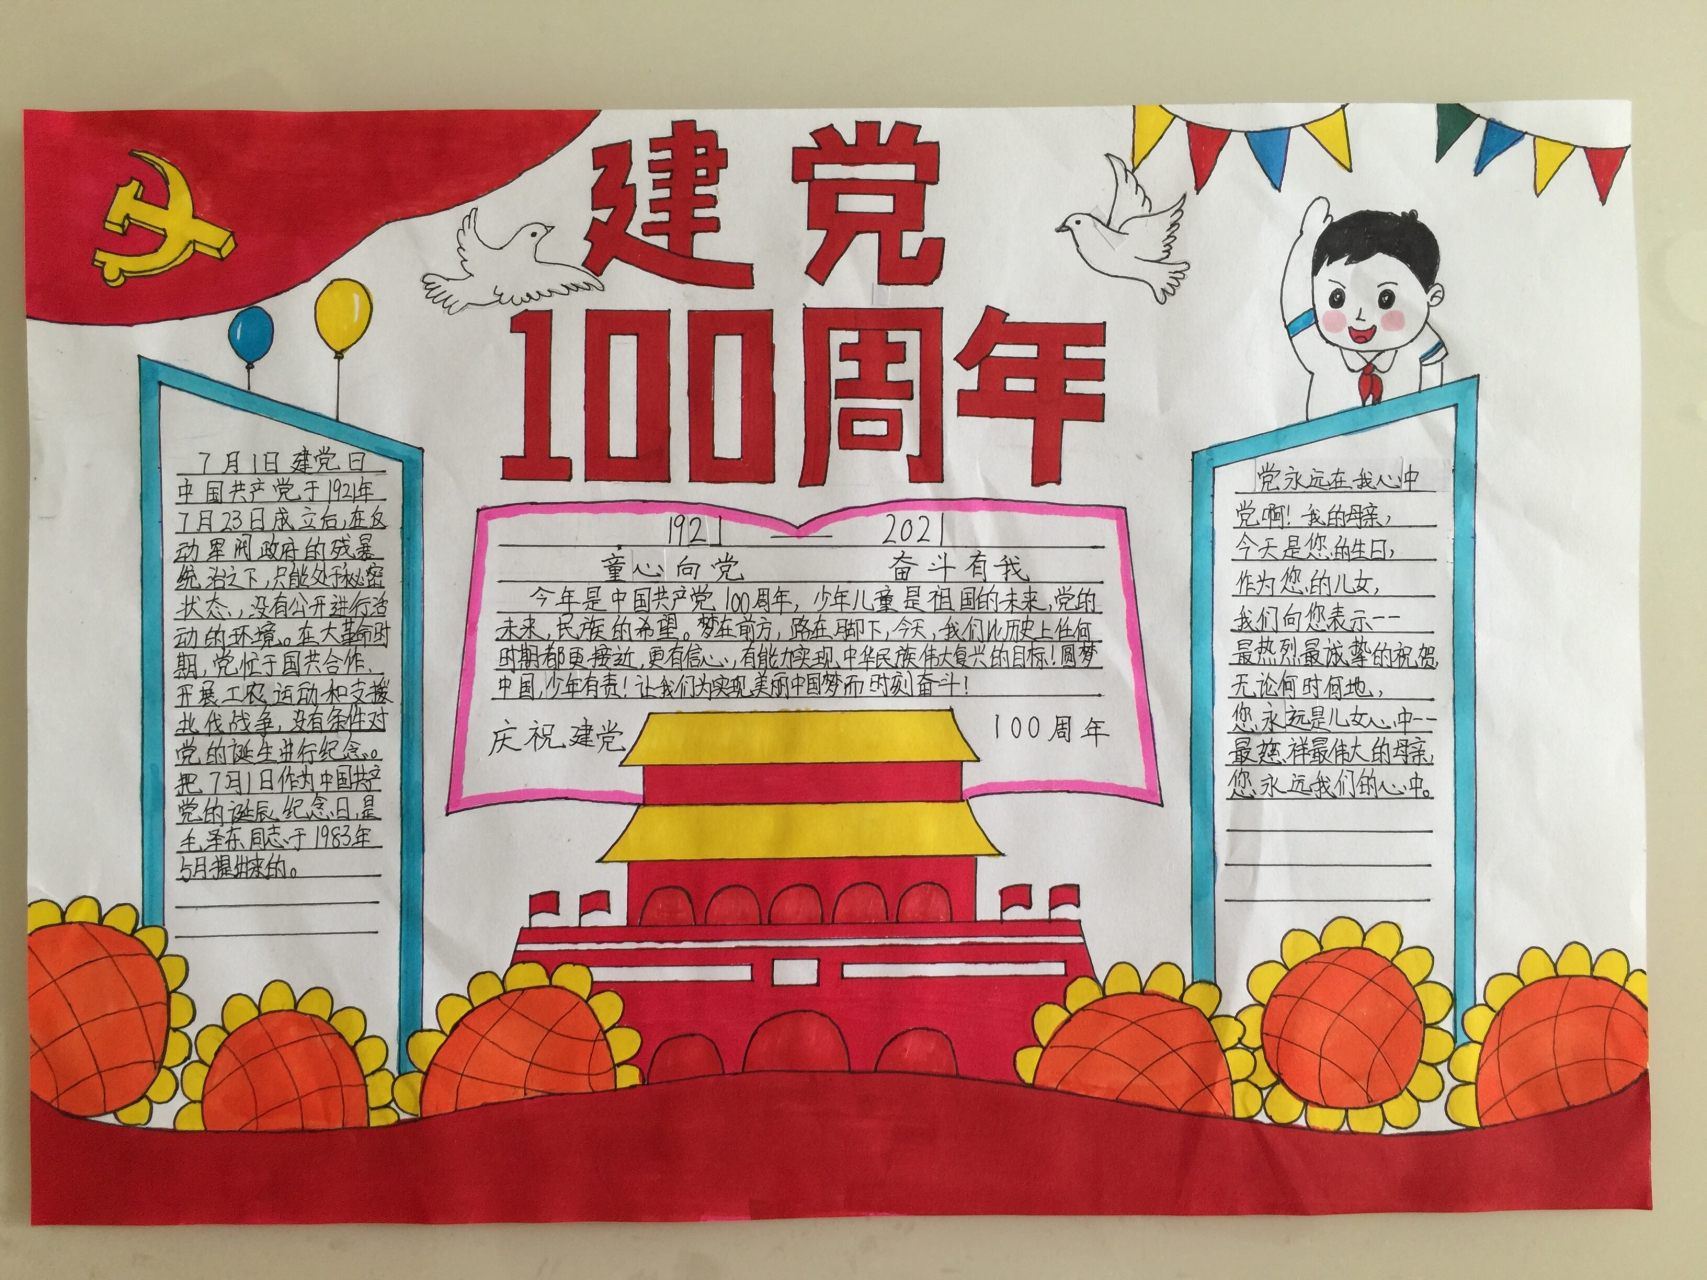 建党
100周年
7月1日建党日
中国共产党于1921年
7月23日成立后,在反
动军阀政府的残暴
统治之下,只能处于秘密
状态,没有公开进行活
动的环境。在大革命时
期,党忙于国共合作、
开展工农运动和支援
北伐战争,没有条件对
党的诞生进行纪念。
把7月1日作为中国共产
党的诞辰纪念日,是
毛泽东同志于1983年
5月提出来的。
1921 — 2021
童心向党 奋斗有我
今年是中国共产党100周年,少年儿童是祖国的未来,党的
未来,民族的希望。梦在前方,路在脚下,今天,我们比历史上任何
时期都更接近,更有信心,有能力实现中华民族伟大复兴的目标!圆梦
中国,少年有责!让我们为实现美丽中国梦而时刻奋斗!
庆祝建党 100周年
党永远在我心中
党啊!我的母亲,
今天是您的生日,
作为您的儿女,
我们向您表示--
最热烈最诚挚的祝贺,
无论何时何地,
您永远是儿女心中--
最慈祥最伟大的母亲,
您永远我们的心中。